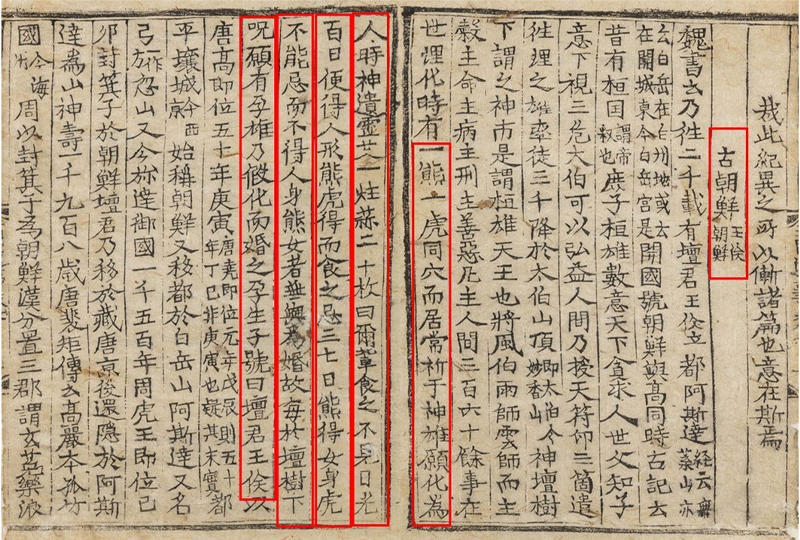 哉此紀異之所以慚諸篇也意在斯焉
古朝鮮 王儉朝鮮
魏書云乃徃二千載有壇君王儉立都阿斯達 經云無葉山亦
云白岳在白州地或云在開城東今白岳宮是 開國號朝鮮與高同時古記云
昔有桓囯 謂帝釋也 庶子桓雄數意天下貪求人世父知子
意下視三危太伯可以弘益人間乃授天符印三箇遣
徃理之雄率徒三千降於太伯山頂 即太伯今妙香山 神壇樹
下謂之神市是謂桓雄天王也將風伯雨師雲師而主
穀主命主病主刑主善惡凡主人間三百六十餘事在
世理化時有一熊一虎同穴而居常祈于神雄願化為
人時神遺靈艾一炷蒜二十枚曰爾輩食之不見日光
百日便得人形熊虎得而食之忌三七日熊得女身虎
不能忌而不得人身熊女者無與為婚故每於壇樹下
呪願有孕雄乃假化而婚之孕生子號曰壇君王儉以
唐高即位五十年庚寅 唐堯即位元年戊辰則五十年丁巳非庚寅也疑其未實 都
平壤城 今西京 始稱朝鮮又移都於白岳山阿斯達又名
弓 一作方 忽山又今弥達御國一千五百年周虎王即位己
卯封箕子於朝鮮壇君乃移於藏唐京後還隱於阿斯
達為山神壽一千九百八歲唐裴矩傳云高麗本孤竹
國 今海州 周以封箕子為朝鮮漢分置三郡謂玄菟樂浪